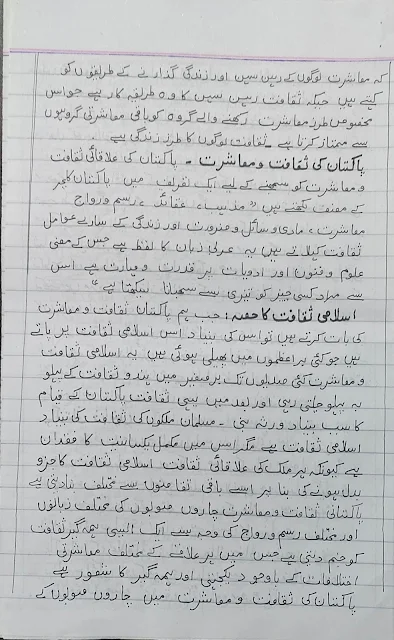 کہ معاشرت لوگوں کے رہن سہن اور زندگی گذارنے کے طریقوں کو
کہتے ہیں جبکہ ثقافت رہن سہن کا وہ طریقہ کار ہے جو اس
مخصوص طرز معاشرت رکھنے والے گروہ کو باقی معاشرتی گروہوں
سے ممتاز کرتا ہے ۔ ثقافت لوگوں کا طرز زندگی ہے
پاکستان کی ثقافت و معاشرت ۔ پاکستان کی علاقائی ثقافت
و معاشرت کو سمجھنے کے لیے ایک تعریف میں پاکستان کلچر
کے مصنف لکھتے ہیں " مذہب، عقائد ، رسم و رواج
معاشرت ، مادی وسائل و ضرورت اور زندگی کے سارے عوامل
ثقافت کہلاتے ہیں یہ عربی زبان کا لفظ ہے جس کے معنی
علوم و فنون اور ادبیات پر قدرت و مہارت ہے اس
سے مراد کسی چیز کو تیزی سے سمجھنا سیکھنا ہے "
اسلامی ثقافت کا حصہ : جب ہم پاکستان ثقافت و معاشرت
کی بات کرتے ہیں تو اس کی بنیاد اس اسلامی ثقافت پر پاتے
ہیں جو کئی براعظموں میں پھیلی ہوئی ہیں یہ اسلامی ثقافت
و معاشرت کئی صدیوں تک برصغیر میں ہندو ثقافت کے پہلو
بہ پہلو چلتی رہی اور بعد میں یہی ثقافت پاکستان کے قیام
کا سبب بنیاد ورثہ بنی ۔ مسلمان ملکوں کی ثقافت کی بنیاد
اسلامی ثقافت ہے مگر اس میں مکمل یکسانیت کا فقدان
ہے کیونکہ ہر ملک کی علاقائی ثقافت اسلامی ثقافت کا جزو
بدل ہونے کی بنا پر اسے باقی ثقافتوں سے مختلف بنا دیتی ہے
پاکستانی ثقافت و معاشرت چاروں صوبوں کی مختلف زبانوں
اور مختلف رسم و رواج کی وجہ سے ایک ایسی ہمہ گیر ثقافت
کو جنم دیتی ہے جس میں ہر علاقے کے مختلف معاشرتی
اختلافات کے باوجود یکجہتی اور ہمہ گیر کا شعور ہے
پاکستان کی ثقافت و معاشرت میں چاروں صوبوں کے